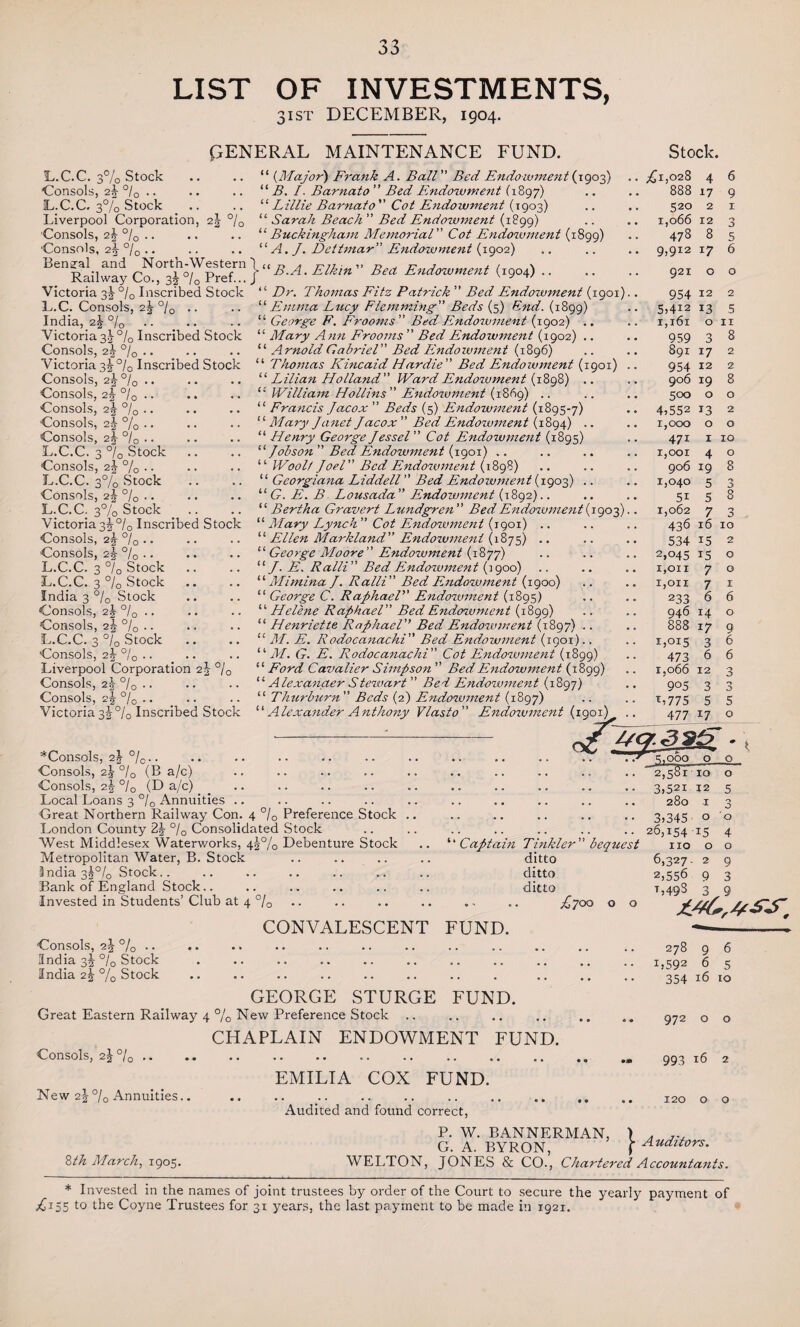 33
LIST OF INVESTMENTS,
31ST DECEMBER, 1904.
GENERAL MAINTENANCE FUND. Stock.
L.C.C. 3% Stock .. .. “(Major) Frank A. Ball” Bed Endowment (1903) .. £1,028 4 6
Consols, 2½ % .. .. .. “B. I. Barnato” Bed Endowment (1897) .. .. 888 17 9
L.C.C. 3% Stock .. .. “Lillie Barnato” Cot Endowment (1903) .. .. 520 2 1
Liverpool Corporation, 2½ % “Sarah Beach” Bed Endowment (1899) .. .. 1,066 12 3
Consols, 2½ % .. .. .. “Buckingham Memorial” Cot Endowment (1899) .. 478 8 5
Consols, 2½ % .. .. .. “A. J. Dettmar” Endowment (1902) .. .. .. 9,912 17 6
Bengal and North-Western Railway Co., 3½ % Pref... } “B.A. Elkin” Bed Endowment (1904) .. .. .. 921 0 0
Victoria 3½ % Inscribed Stock “Dr. Thomas Fitz Patrick” Bed Endowment (1901).. 954 12 2
L.C. Consols, 2½ % .. .. “Emma Lucy Flemming” Beds (5) End. (1899) .. 5,412 13 5
India, 2½ % .. .. .. “George F. Frooms” Bed Endowment (1902) .. .. 1,161 0 11
Victoria 3½ % Inscribed Stock “Mary Ann Frooms” Bed Endowment (1902) .. .. 959 3 8
Consols, 2½ % .. .. .. “Arnold Gabriel” Bed Endowment (1896) .. .. 891 17 2
Victoria 3½ % Inscribed Stock “Thomas Kincaid Hardie” Bed Endowment (1901) .. 954 12 2
Consols, 2½ % .. .. .. “Lilian Holland” Ward Endowment (1898) .. .. 906 19 8
Consols, 2½ % .. .. .. “William Hollins” Endowment (1869) .. .. .. 500 0 0
Consols, 2½ % .. .. .. “Francis Jacox” Beds (5) Endowment (1895-7) .. 4,552 13 2
Consols, 2½ % .. .. .. “Mary Janet Jacox” Bed Endowment (1894) .. .. 1,000 0 0
Consols, 2½ % .. .. .. “Henry George Jessel” Cot Endowment (1895) .. 471 1 10
L.C.C. 3 % Stock .. .. “Jobson” Bed Endowment (1901) .. .. .. .. 1,001 4 0
Consols, 2½ % .. .. .. “Woolf Joel” Bed Endowment (1898) .. .. .. 906 19 8
L.C.C. 3% Stock .. .. “Georgiana Liddell” Bed Endowment (1903) .. .. 1,040 5 3
Consols, 2½ % .. .. .. “G. E. B Lousada” Endowment (1892).. .. .. 51 5 8
L.C.C. 3% Stock .. .. “Bertha Gravert Lundgren” Bed Endowment (1903).. 1,062 7 3
Victoria 3½ % Inscribed Stock “Mary Lynch” Cot Endowment (1901) .. .. .. 436 16 10
Consols, 2½ % .. .. .. “Ellen Markland” Endowment (1875) .. .. .. 534 15 2
Consols, 2½ % .. .. .. “George Moore” Endowment (1877) .. .. .. 2,045 15 0
L.C.C. 3 % Stock .. .. “J. E. Ralli” Bed Endowment (1900) .. .. .. 1,011 7 0
L.C.C. 3 % Stock .. .. “Mimina J. Ralli” Bed Endowment (1900) .. .. 1,011 7 1
India 3 % Stock .. .. “George C. Raphael” Endowment (1895) .. .. 233 6 6
Consols, 2½ % .. .. .. “Helène Raphael” Bed Endowment (1899) .. .. 946 14 0
Consols, 2½ % .. .. .. “Henriette Raphael” Bed Endowment (1897) .. .. 888 17 9
L.C.C. 3 % Stock .. .. “M. E. Rodocanachi” Bed Endowment (1901).. .. 1,015 3 6
Consols, 2½ % .. .. .. “M. G. E. Rodocanachi” Cot Endowment (1899) .. 473 6 6
Liverpool Corporation 2½ % “Ford Cavalier Simpson” Bed Endowment (1899) .. 1,066 12 3
Consols, 2½ % .. .. .. “Alexander Stewart” Bed Endowment (1897) .. 905 3 3
Consols, 2½ % .. .. .. “Thurburn” Beds (2) Endowment (1897) .. .. 1,775 5 5
Victoria 3½ % Inscribed Stock “Alexander Anthony Vlasto” Endowment (1901) .. 477 17 0
*Consols, 2½ %.. .. .. 5,000 0 0
Consols, 2½ % (B a/c) .. .. 2,581 10 0
Consols, 2½ % (D a/c) .. .. 3,521 12 5
Local Loans 3 % Annuities .. .. 280 1 3
Great Northern Railway Con. 4 % Preference Stock .. .. 3,345 0 0
London County 2½ % Consolidated Stock .. .. 26,154 15 4
West Middlesex Waterworks, 4½% Debenture Stock .. “Captain Tinkler” bequest 110 0 0
Metropolitan Water, B. Stock .. .. ditto 6,327 2 9
India 3½% Stock.. .. .. ditto 2,556 9 3
Bank of England Stock.. .. .. ditto 1,498 3 9
Invested in Students’ Club at 4 % .. .. £700 0 0
CONVALESCENT FUND.
Consols, 2½ % .. .. .. 278 9 6
India 3½ % Stock . .. .. 1,592 6 5
India 2½ % Stock .. .. .. 354 16 10
GEORGE STURGE FUND.
Great Eastern Railway 4 % New Preference Stock .. .. 972 0 0
CHAPLAIN ENDOWMENT FUND.
Consols, 2½ % .. .. .. 993 16 2
EMILIA COX FUND.
New 2½ % Annuities.. .. .. 120 0 0
Audited and found correct,
P. W. BANNERMAN, }
G. A. BYRON, } Auditors.
8th March, 1905. WELTON, JONES & CO., Chartered Accountants.
* Invested in the names of joint trustees by order of the Court to secure the yearly payment of
£155 to the Coyne Trustees for 31 years, the last payment to be made in 1921.